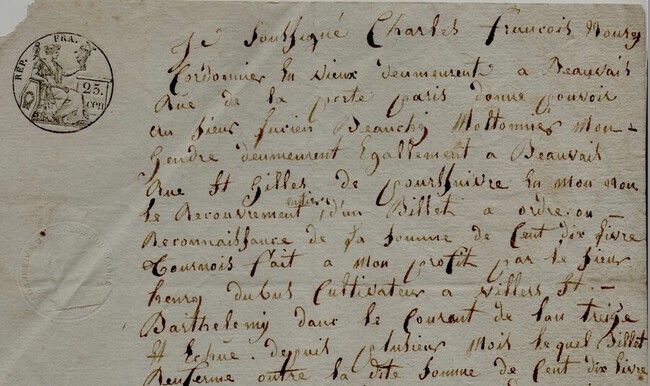 REP. FRA.
25.
cen
Je soussigné Charles François
Cordonnier En vieux deumeurent a Beauvais
Rue de la porte paris donne pouvoir
au sieur Lucien Beauchy Mottonnier Mon-
Gendre deumeurent Egallement a Beauvais
Rue St Gilles de poursuivre En mon nom
le Recouvrement entier d'un Billet a ordre ou
Reconnaissance de la somme de Cent dix livre
Tournois fait a Mon profit par le sieur
henry dubus Cultivateur a villers St.-
Barthelemy dans le Courent de lan treize
Echue depuis plusieur Mois lequel Billet
Renferme outre la dite somme de Cent dix livre